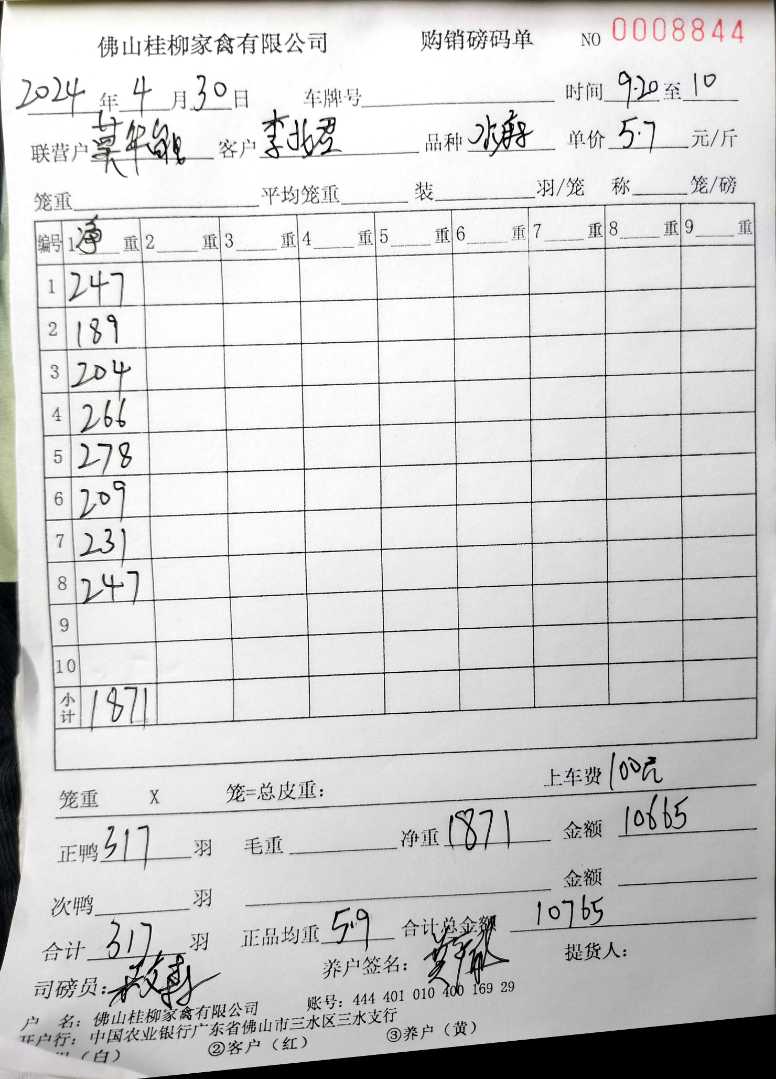 佛山桂柳家禽有限公司 购销磅码单 NO 0008844
2024年4月30日 车牌号 时间9.20至10
联营户 客户 品种 单价5.7元/斤
笼重 平均笼重 装 羽/笼 称 笼/磅
编号 1净重 2 重 3 重 4 重 5 重 6 重 7 重 8 重 9 重
1 247
2 189
3 204
4 266
5 278
6 209
7 231
8 247
9
10
小计 1871
笼重 X 笼=总皮重: 上车费100元
正鸭317羽 毛重 净重1871 金额10665
次鸭 羽 金额
合计317羽 正品均重5.9 合计总金额10765
司磅员: 养户签名: 提货人:
户 名: 佛山桂柳家禽有限公司 账号: 444 401 010 400 169 29
开户行: 中国农业银行广东省佛山市三水区三水支行
(白) ②客户(红) ③养户(黄)